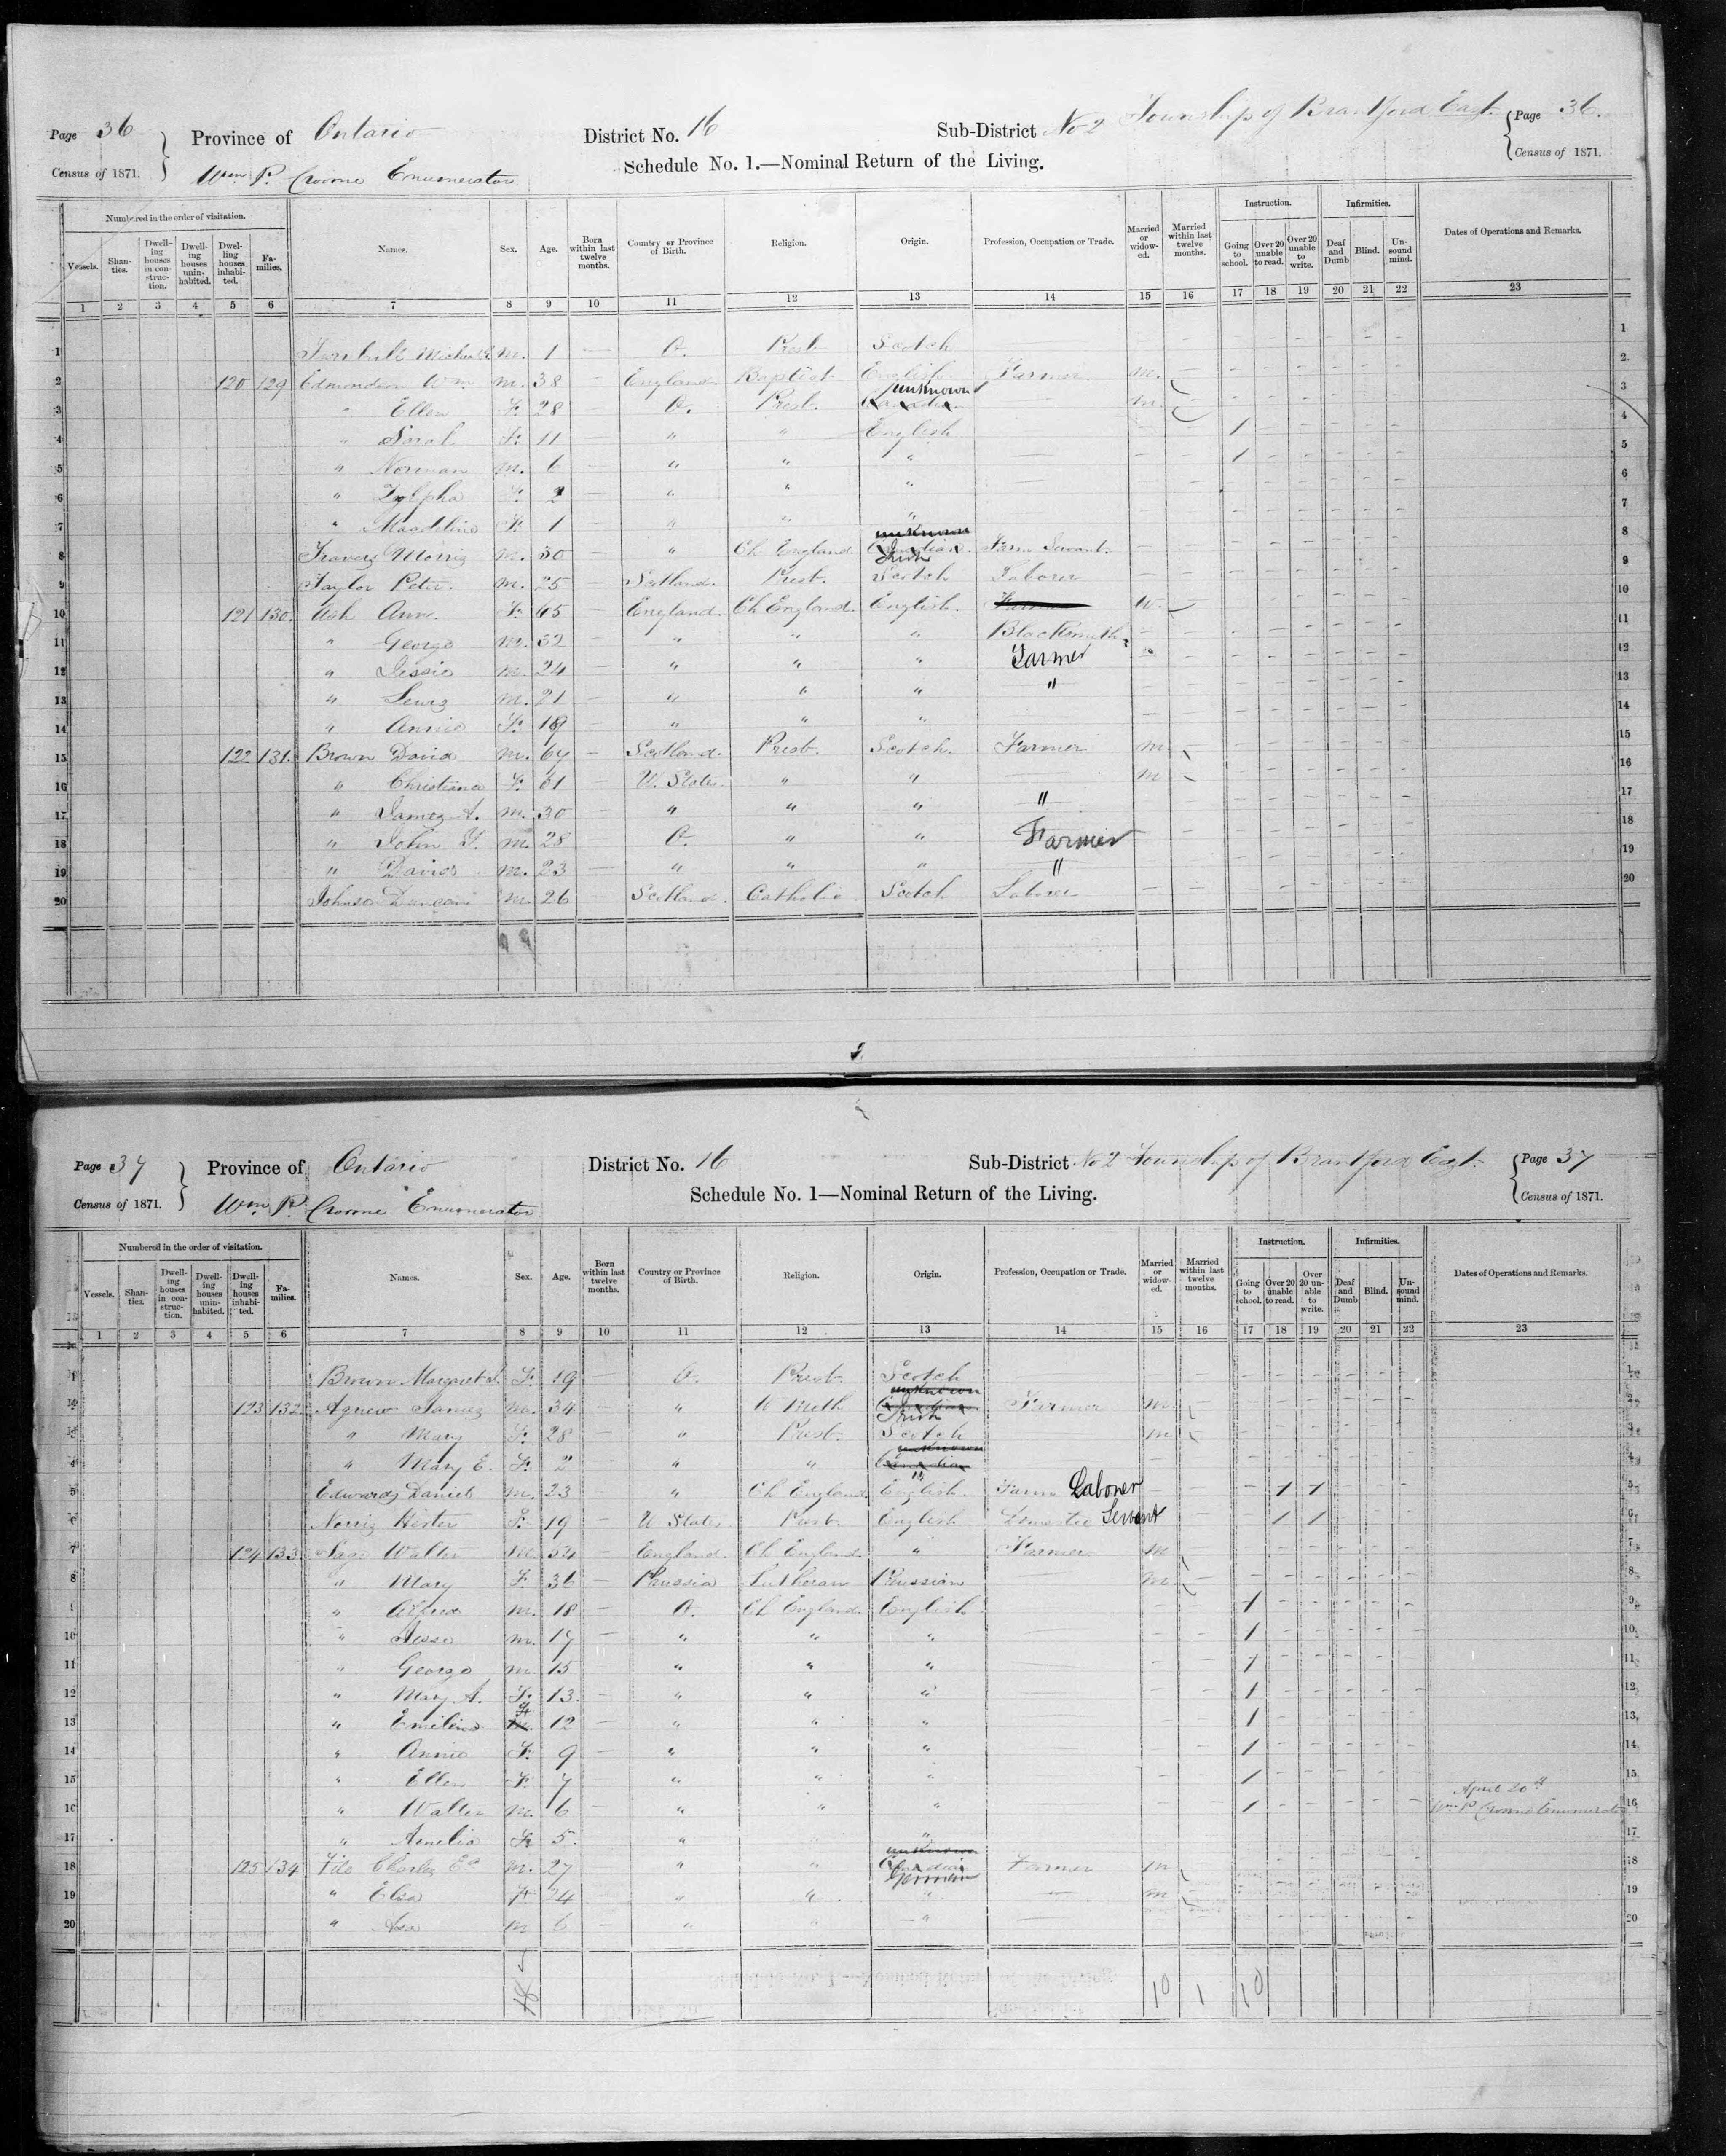 Page 36 Province of Ontario District No. 16 Sub-District No 2 Township of Brantford East Page 36.
Census of 1871. Wm P. Crome Enumerator Schedule No. 1.—Nominal Return of the Living. Census of 1871.
Numbered in the order of visitation. Instruction. Infirmities.
Vessels. Shanties. Dwelling houses in construction. Dwelling houses uninhabited. Dwelling houses inhabited. Families. Names. Sex. Age. Born within last twelve months. Country or Province of Birth. Religion. Origin. Profession, Occupation or Trade. Married or widowed. Married within last twelve months. Going to school. Over 20 unable to read. Over 20 unable to write. Deaf and Dumb Blind. Unsound mind. Dates of Operations and Remarks.
1 2 3 4 5 6 7 8 9 10 11 12 13 14 15 16 17 18 19 20 21 22 23
1 M. 1 — O. Presb. Scotch — 1
2 120 129 Edmondson Wm M. 38 — England Baptist English Farmer M. 2
3 " Ellen F. 28 — O. Presb. unknown — M. 3
4 " Sarah F. 11 — " " English — 1 4
5 " Norman M. 6 — " " " — 1 5
6 " Zylpha F. 2 — " " " — 6
7 " Magdeline F. 1 " " " — 7
8 Travers Morris M. 30 — " Ch England unknown Irish Farm Servant 8
9 Taylor Peter M. 25 — Scotland. Presb. Scotch Laborer 9
10 121 130 Ash Ann. F. 65 England. Ch England. English. W. 10
11 " George M. 32 — " " " Blacksmith 11
12 " Jessie M. 24 — " " " Farmer 12
13 " Lewis M. 21 — " " " " 13
14 " Annie F. 19 — " " " 14
15 122 131. Brown David M. 67 — Scotland. Presb. Scotch. Farmer M. 15
16 " Christiana F. 61 U. States " " — M 16
17 " James A. M. 30 " " " " 17
18 " John Y. M. 28 O. " " Farmer 18
19 " David M. 23 " " " " 19
20 Johnson Duncan M. 26 Scotland. Catholic Scotch Laborer 20
Page 37 Province of Ontario District No. 16 Sub-District No 2 Township of Brantford East Page 37
Census of 1871. Wm P. Crome Enumerator Schedule No. 1—Nominal Return of the Living. Census of 1871.
Numbered in the order of visitation. Instruction. Infirmities.
Vessels. Shanties. Dwelling houses in construction. Dwelling houses uninhabited. Dwelling houses inhabited. Families. Names. Sex. Age. Born within last twelve months. Country or Province of Birth. Religion. Origin. Profession, Occupation or Trade. Married or widowed. Married within last twelve months. Going to school. Over 20 unable to read. Over 20 unable to write. Deaf and Dumb Blind. Unsound mind. Dates of Operations and Remarks.
1 2 3 4 5 6 7 8 9 10 11 12 13 14 15 16 17 18 19 20 21 22 23
1 Brown Margaret F. 19 — O. Presb. Scotch — 1
2 123 132 Agnew James M. 34 — " W Meth unknown Irish Farmer M. 2
3 " Mary F. 28 — " Presb. Scotch — M 3
4 " Mary E. F. 2 — " " unknown — 4
5 Edwards Daniel M. 23 — " Ch England English. Farm Laborer 1 1 5
6 Norris Hester F. 19 — U States Presb English Domestic Servant 1 1 6
7 124 133 Walter M. 54 — England. Ch England " Farmer M 7
8 " Mary F. 36 — Prussia Lutheran Prussian — M. 8
9 " Alfred M. 18 — O. Ch England English — 1 9
10 " Jesse M. 17 — " " " — 1 10
11 " George M. 15 " " " — 1 11
12 " Mary A. F. 13. — " " " — 1 12
13 " Emiline F. 12 — " " " — 1 13
14 " Annie F. 9 — " " " — 1 14
15 " Ellen F. 7 " " " — 1 15
16 " Walter M. 6 — " " " — 1 April 20th Wm P. Crome Enumerator 16
17 " Amelia F. 5. " " 17
18 125 134 Charles Ed M. 27 " " unknown Canadian German Farmer M 18
19 " Eliza F 24 " " " — M 19
20 " Asa M 6 " " " — 20
10 1 10